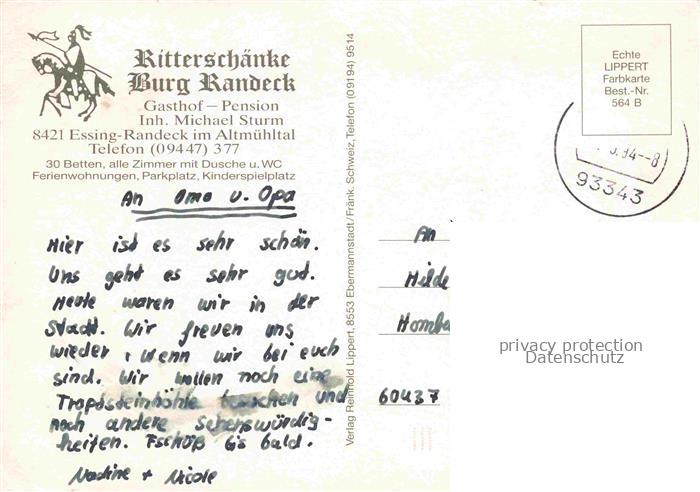 Ritterschänke
Burg Randeck
Gasthof – Pension
Inh. Michael Sturm
8421 Essing-Randeck im Altmühltal
Telefon (09447) 377
30 Betten, alle Zimmer mit Dusche u. WC
Ferienwohnungen, Parkplatz, Kinderspielplatz
An Oma u. Opa
Hier ist es sehr schön.
Uns geht es sehr gut.
Heute waren wir in der
Stadt. Wir freuen uns
wieder, wenn wir bei euch
sind. Wir wollen noch eine
Tropfsteinhöhle besuchen und
noch andere Sehenswürdig-
heiten. Tschüß bis bald.
Nadine + Nicole
Verlag Reinhold Lippert, 8553 Ebermannstadt/Fränk. Schweiz, Telefon (09194) 9514
Echte
LIPPERT
Farbkarte
Best.-Nr.
564 B
.94--8
93343
An
Hilde
Homba
60437
privacy protection
Datenschutz